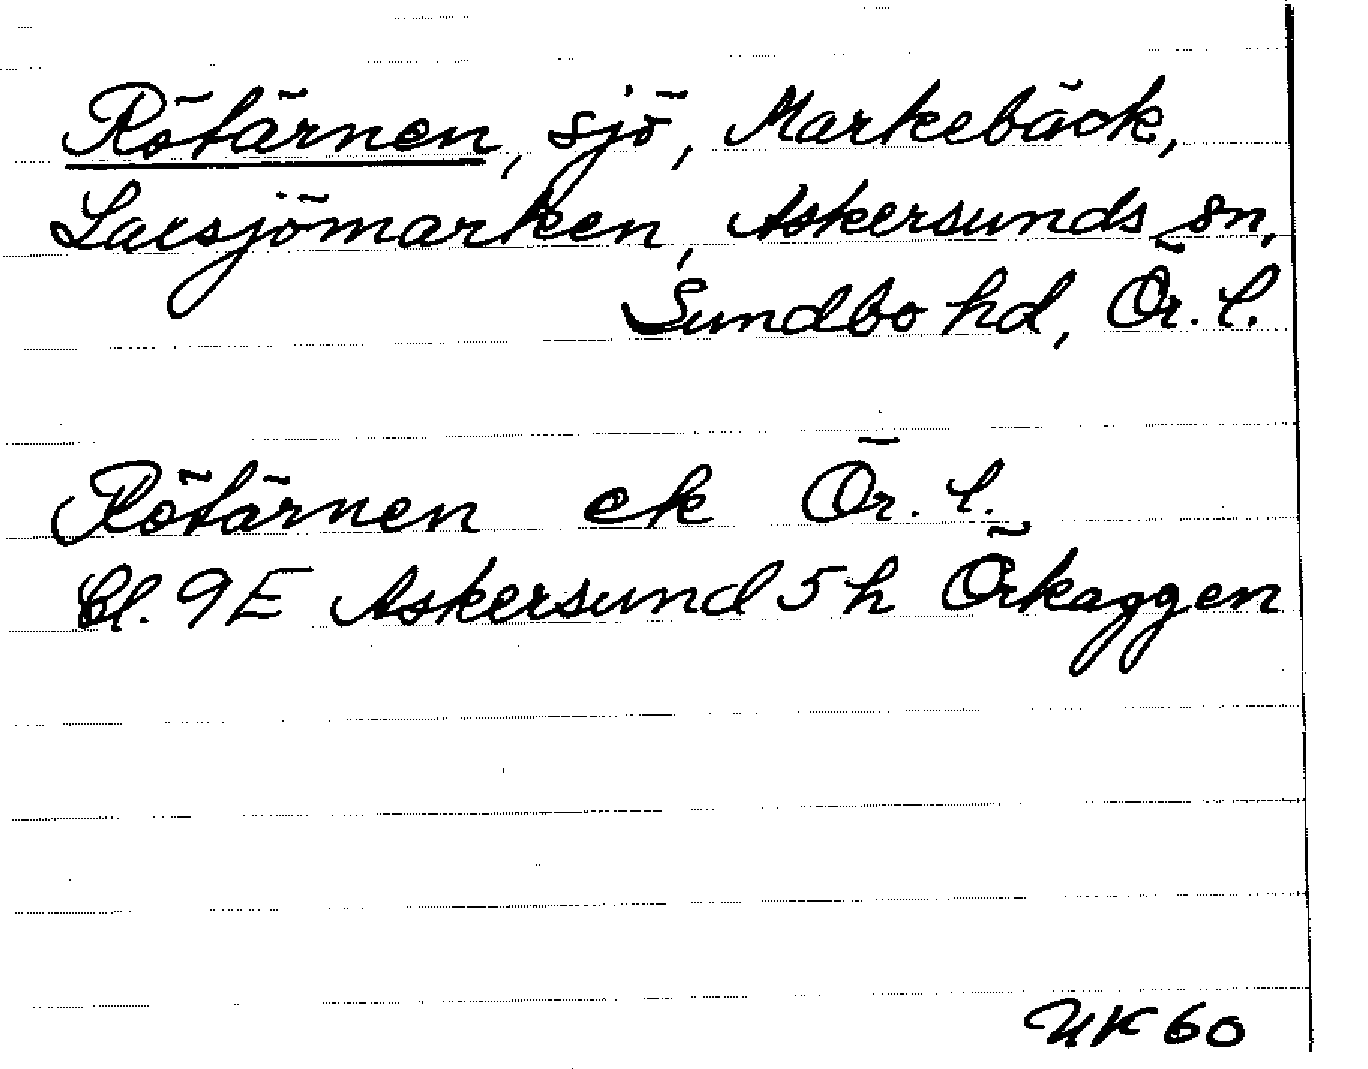 Rötärnen, sjö, Markebäck,
Laxsjömarken, Askersunds sn,
Sundbo hd, Ör. l.
Rötärnen ek Ör. l.
Bl. 9E Askersund 5 h Örkaggen
UK 60